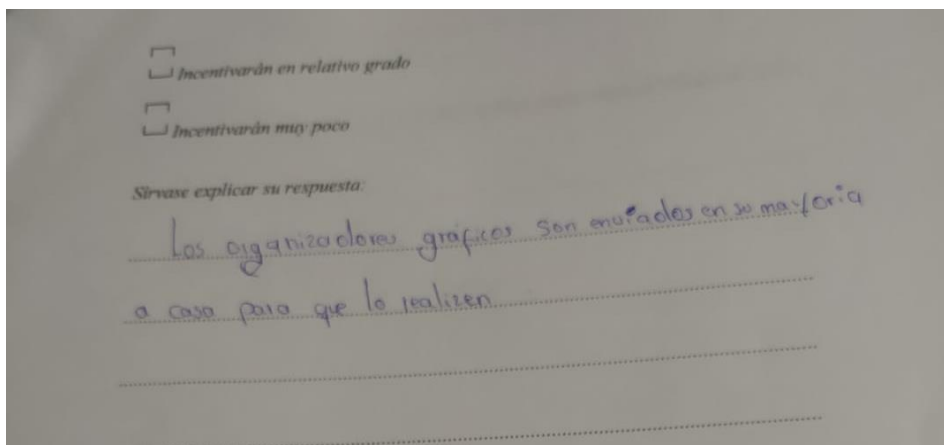 Incentivarán en relativo grado
Incentivarán muy poco
Sírvase explicar su respuesta:
Los organizadores gráficos son enviados en su mayoria
a casa para que lo realizen